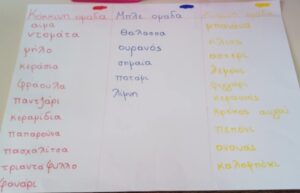 Κόκκινη ομάδα
αίμα
ντομάτα
μήλο
κεράσια
φράουλα
παντζάρι
κεραμίδια
παπαρούνα
πασχαλίτσα
τριαντάφυλλο
φανάρι
Μπλε ομάδα
θάλασσα
ουρανός
σημαία
ποτάμι
λίμνη
ομάδα
μπανάνα
ήλιος
αστέρι
λεμόνι
φεγγάρι
κρόκος αυγού
πεπόνι
ανανάς
καλαμπόκι